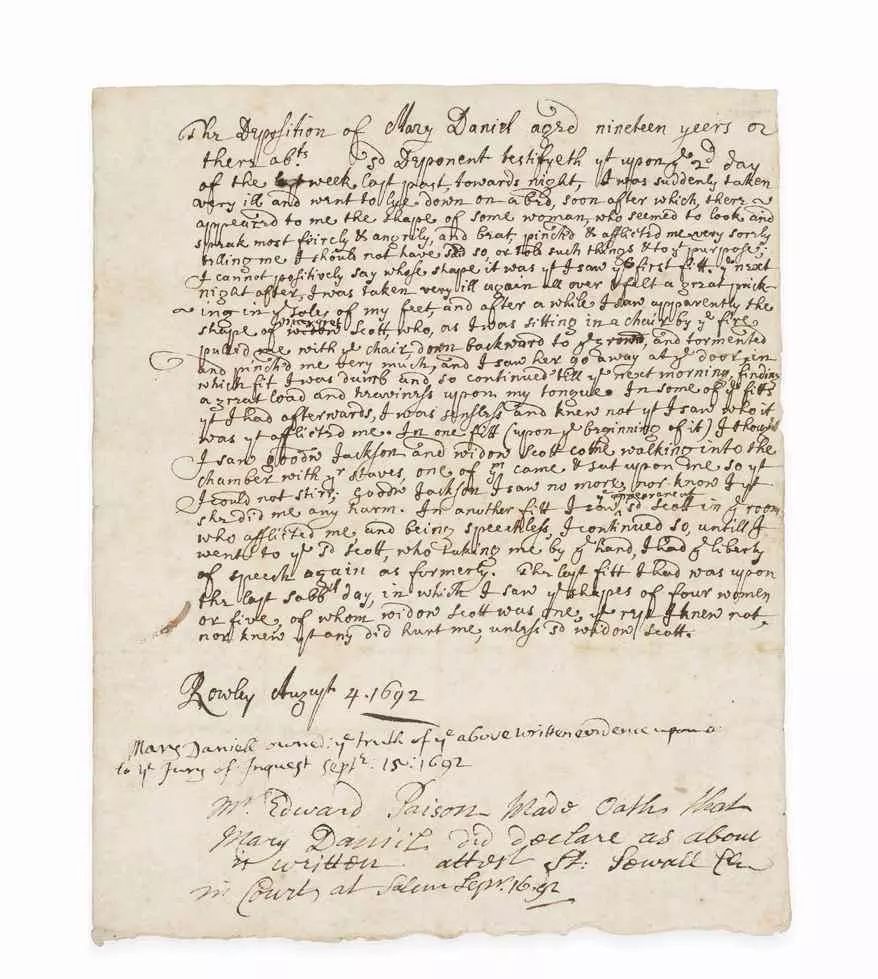 The Deposition of Mary Daniel aged nineteen yeers or
there abts. sd Deponent testifyeth yt upon ye 2d day
of the week last past, towards night, I was suddenly taken
very ill and went to lye down on a bed, soon after which, there
appeared to me the shape of some woman, who seemed to look and
speak most feircly & angrily, and beat, pinch'd & afflicted me very sorely
telling me I should not have said so, or told such things & to yt purpose;
I cannot positively say whose shape it was yt I saw ye first fitt. ye next
night after, I was taken very ill again all over & felt a great prick
ing in ye soles of my feet, and after a while I saw apparently the
shape of Margret Scott, who, as I was sitting in a chair by ye fire
pulled me with ye chair, down backward to ye ground, and tormented
and pinch'd me very much, and I saw her go away at ye door, in
which fit I was dumb and so continued till ye next morning, finding
a great load and heaviness upon my tongue. In some of ye fitts
yt I had afterwards, I was sensless and knew not yt I saw who it
was yt afflicted me. In one fitt (upon ye beginning of it) I thought
I saw goodw Jackson and widow Scott come walking into the
chamber with yr staves, one of ym came & sat upon me so yt
I could not stirr; Goodw Jackson I saw no more, nor know I yt
she did me any harm. In another fitt I saw ye appearance sd Scott in ye room
who afflicted me, and being speechless, I continued so, untill I
went to ye sd Scott, who taking me by ye hand, I had ye liberty
of speech again as formerly. The last fitt I had was upon
the last Sabbth day, in which I saw ye shapes of four women
or five, of whom widow Scott was one, ye rest I knew not,
nor knew yt any did hurt me, unless sd widow Scott.
Rowley August 4. 1692
Mary Daniell owned: ye truth of ye above written evidence
to ye Jury of Inquest Septr: 15: 1692
Mr Edward Paison Made oath that
Mary Daniel did declare as above
is written attest St: Sewall Cler
in Court at Salem Sepr. 16. 92